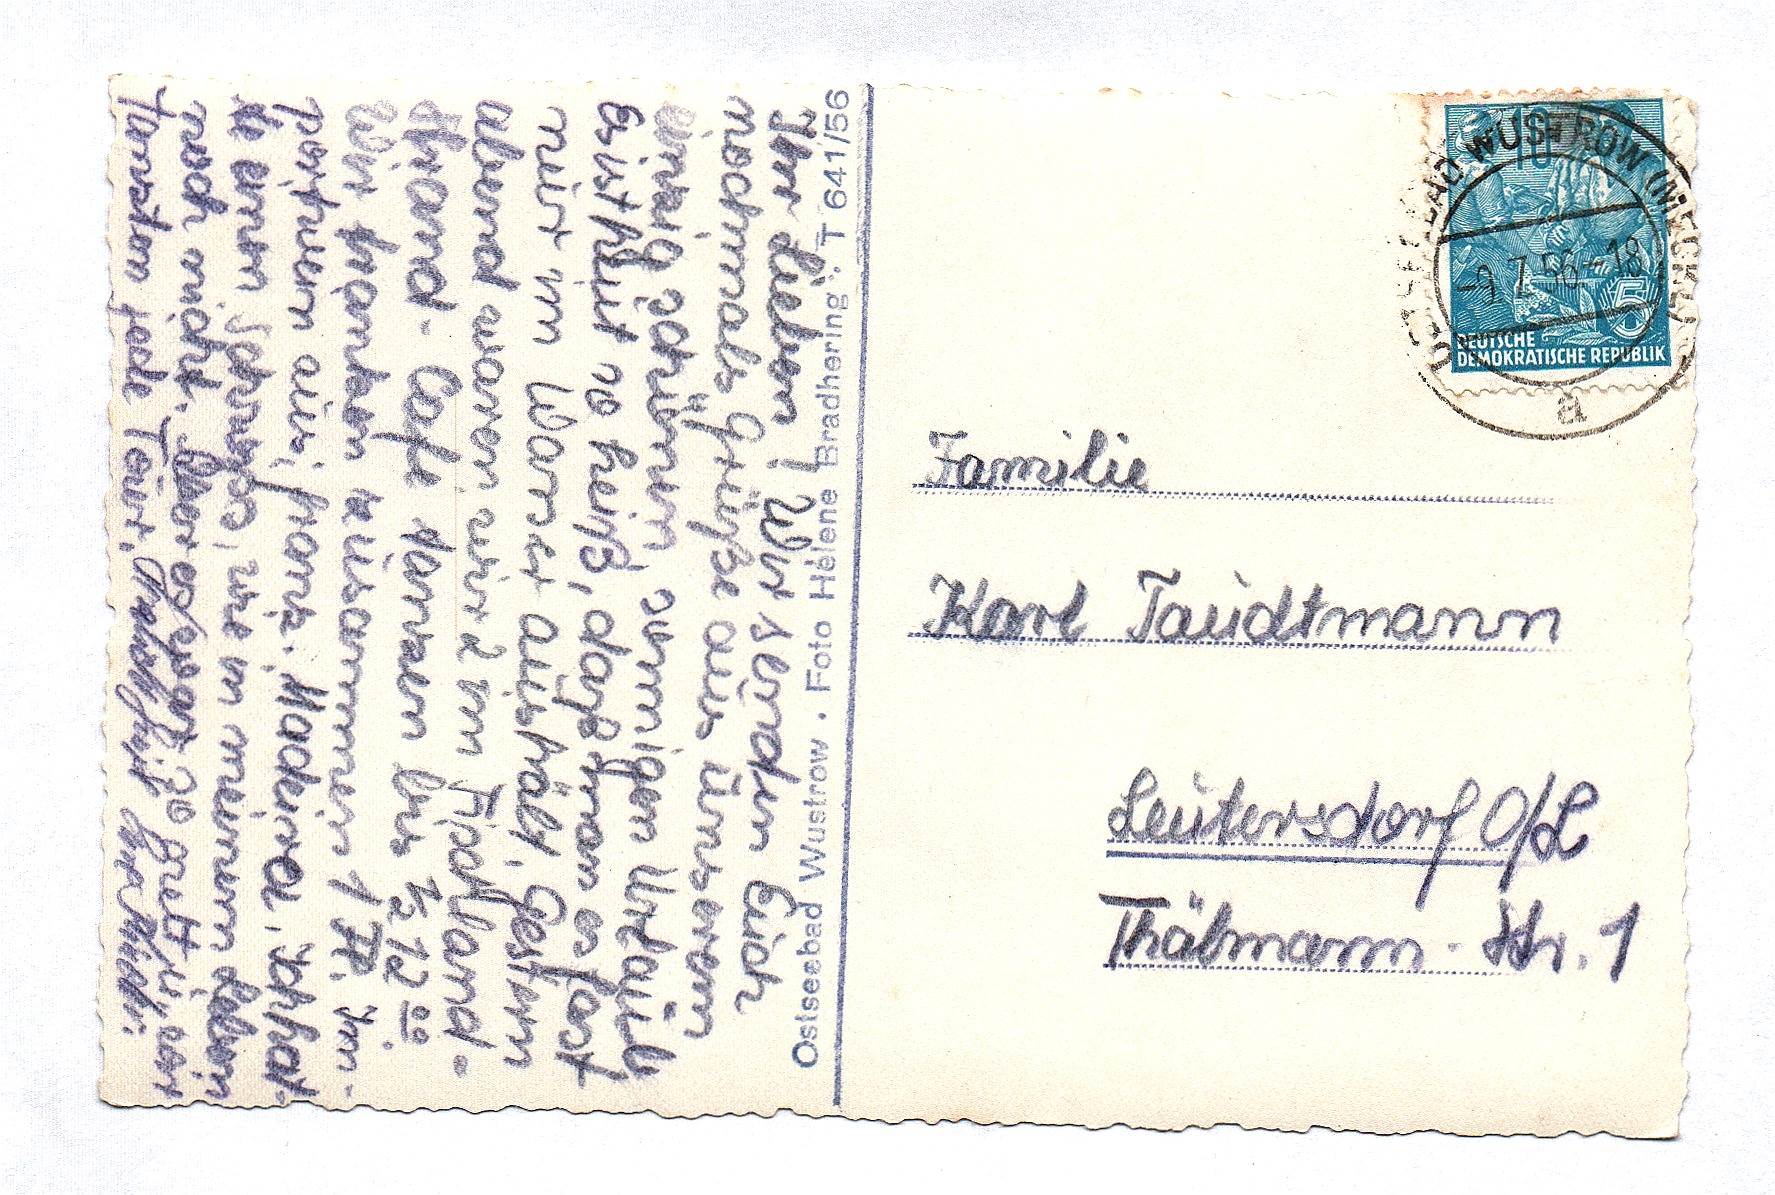 Ihr Lieben! Wir senden Euch
nochmals Grüße aus unserem
einzig schönen sonnigen Urlaub
Es ist heut so heiß, daß man es fast
nur im Wasser aushält. Gestern
abend waren wir 2 im Fischland-
Strand-Cafe tanzen bis ½ 12 00
Wir tranken zusammen 1 Fl. Im-
portwein aus, franz. Madeira. Ich hat-
te einen Schwips, wie in meinem Leben
noch nicht. Aber es war
Tanzten jede Tour.
Ostseebad Wustrow . Foto Helene Bradhering . T 641/56
OSTSEEBAD WUSTROW (MECKL)
-9.7.56-18
a
10
5
DEUTSCHE
DEMOKRATISCHE REPUBLIK
Familie
Karl Taudtmann
Leutersdorf O/L
Thälmann-Str. 1